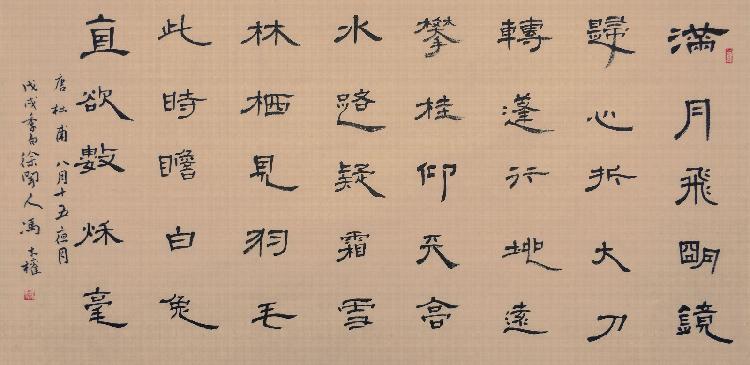 滿月飛明鏡
歸心折大刀
轉蓬行地遠
攀桂仰天高
水路疑霜雪
林栖見羽毛
此時瞻白兔
直欲數秋毫
唐杜甫八月十五夜月
戊戌季徐闻人馮權